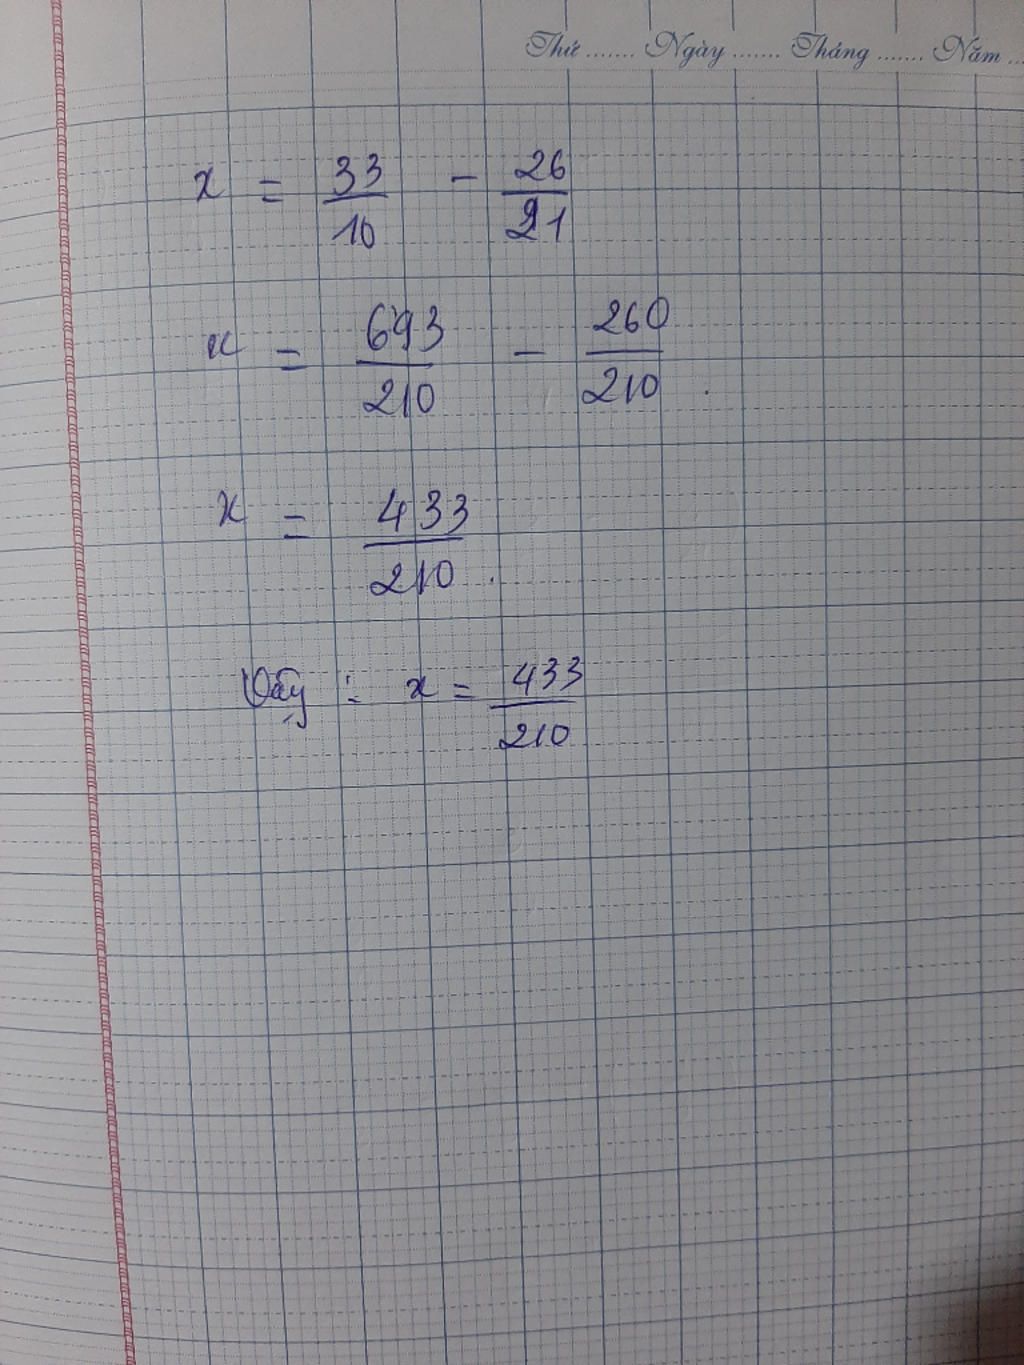 Thứ ....... Ngày ....... Tháng ....... Năm ...
x = 33/10 - 26/21
x = 693/210 - 260/210 .
x = 433/210 .
Vậy : x = 433/210